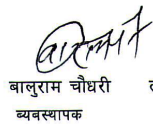 बालुराम चौधरी
ब्यबस्थापक